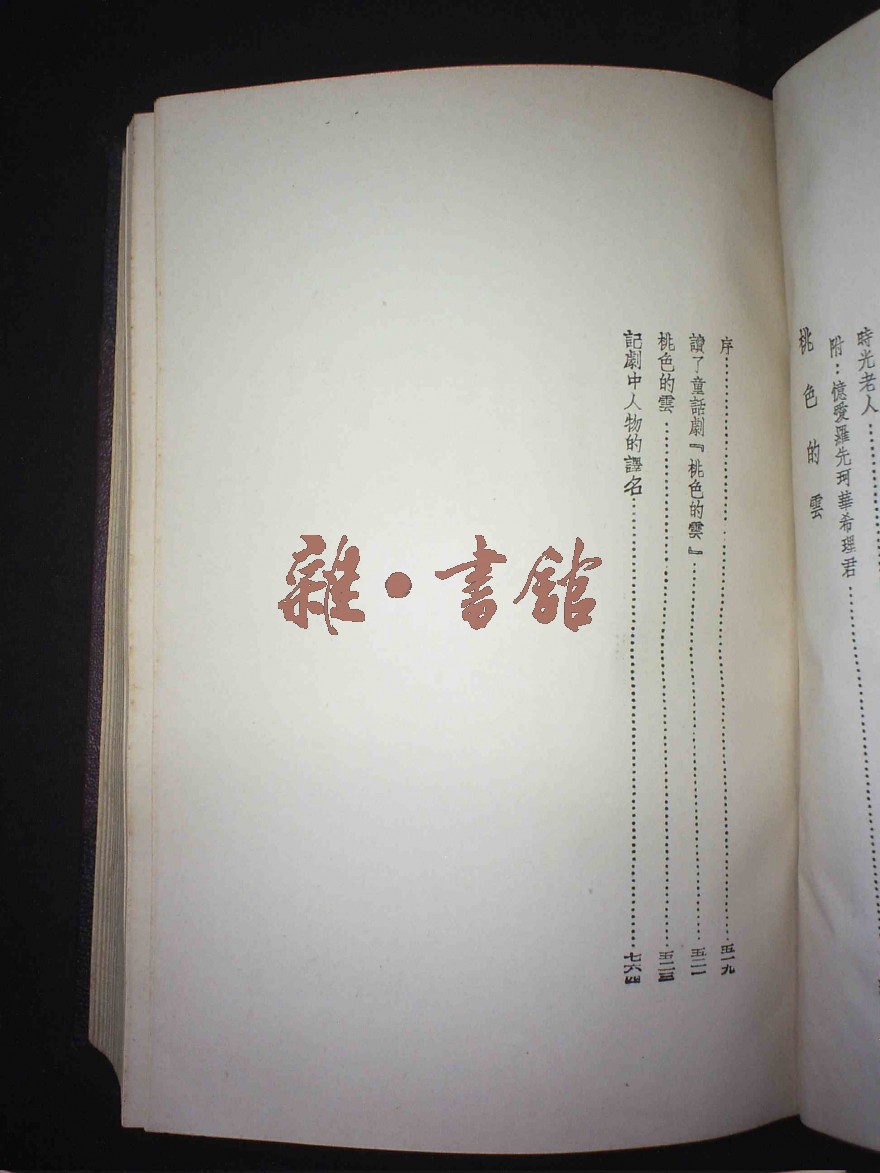 時光老人…………
附：憶愛羅先珂華希理君…………
桃色的雲
序…………五一九
讀了童話劇『桃色的雲』…………五二一
桃色的雲…………五二三
記劇中人物的譯名…………七六四
雜•書館